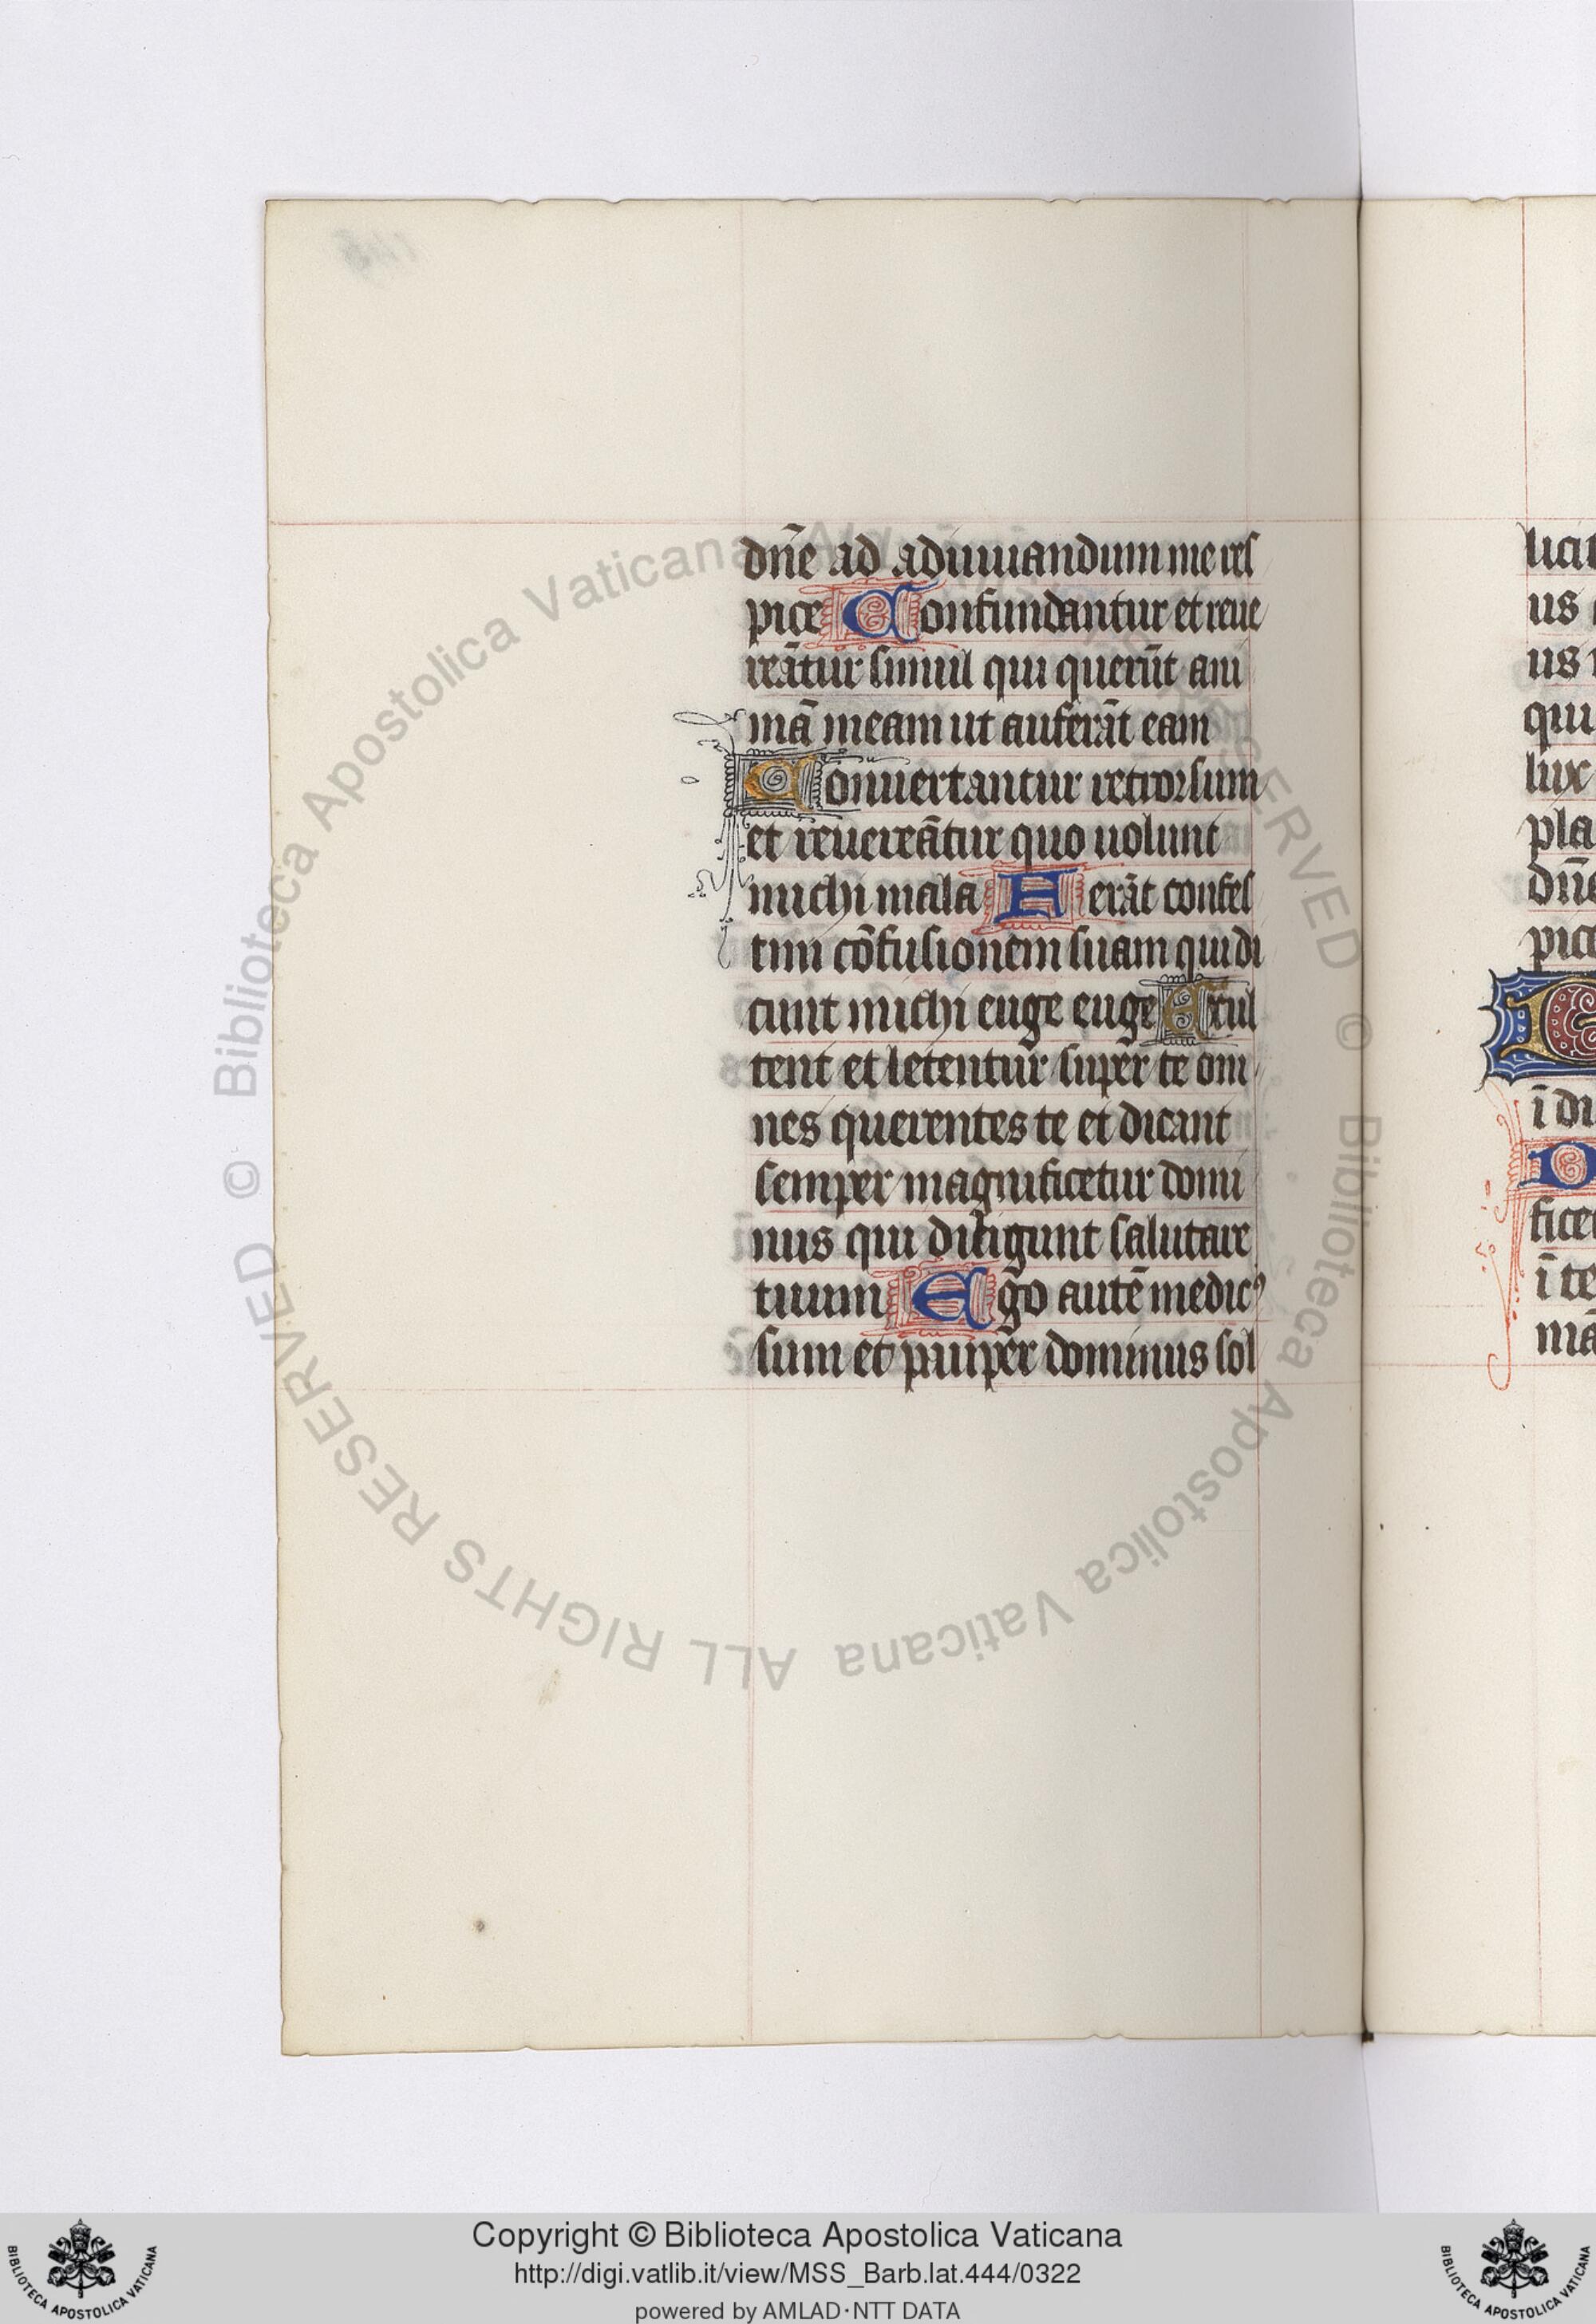 dñe ad adiuuandum me res
pice Confundantur et reue
reãtur simul qui querũt ani
mã meam ut auferãt eam
Conuertantur retrorsum
et reuereãtur quo uolunt
michi mala Ferãt confes
tim cõfusionem suam qui di
cunt michi euge euge Exul
tent et letentur super te om
nes querentes te et dicant
semper magnificetur domi
nus qui diligunt salutare
tuum Ego autẽ medicꝰ
sum et pauper dominus sol
licit
us
us
qui
lux
pla
dñe
pice
ĩ di
D
fice
ĩ te
mã
© Biblioteca Apostolica Vaticana ALL RIGHTS RESERVED © Biblioteca Apostolica Vaticana ALL RIGHTS RESERVED
Copyright © Biblioteca Apostolica Vaticana
http://digi.vatlib.it/view/MSS_Barb.lat.444/0322
powered by AMLAD·NTT DATA
BIBLIOTECA APOSTOLICA VATICANA
BIBLIOTECA APOSTOLICA VATICANA